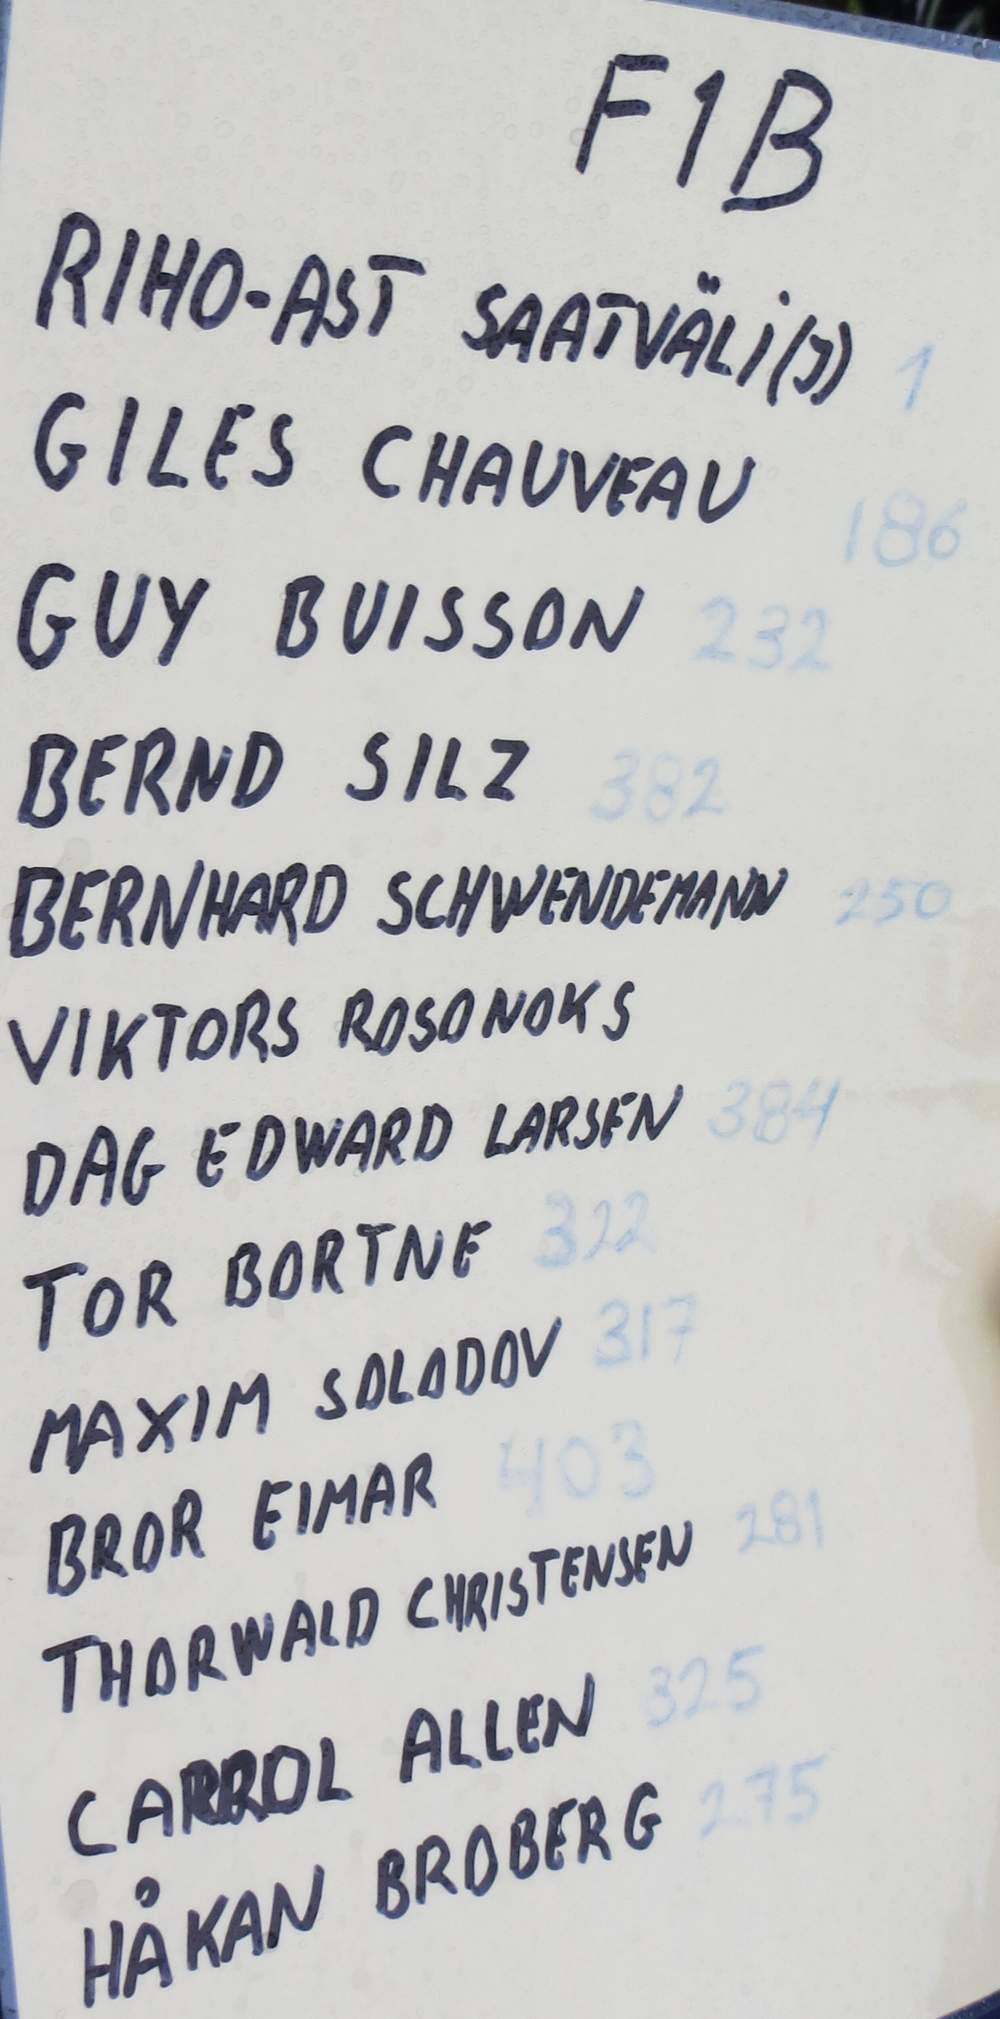 F1B
RIHO-AST SAATVÄLI(J) 1
GILES CHAUVEAU 186
GUY BUISSON 232
BERND SILZ 382
BERNHARD SCHWENDEMANN 250
VIKTORS ROSONOKS
DAG EDWARD LARSEN 384
TOR BORTNE 322
MAXIM SOLODOV 317
BROR EIMAR 403
THORWALD CHRISTENSEN 281
CARROL ALLEN 325
HÅKAN BROBERG 275